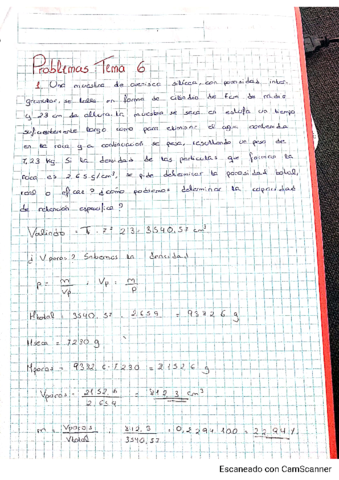 Problemas Tema 6
1. Una muestra de arenisca silícea, con porosidad inter
granular, se talla en forma de cilindro de 7cm de radio
y 23 cm de altura. La muestra se seca en estufa un tiempo
suficientemente largo como para eliminar el agua contenida
en la roca y a continuación se pesa, resultando un peso de
7,23 kg. Si la densidad de las partículas que forman la
roca es 2.65 g/cm³, se pide determinar la porosidad total,
¿como podríamos determinar la capacidad
de retención específica?
Vcilindro = π · 7² · 23 = 3540,57 cm³
¿V poros? Sabemos la densidad
ρ = m/Vp ; Vp = m/ρ
Mtotal = 3540,57 · 2.659 = g
Mseca = 7230 g
Mporos = - 7230 = g
Vporos = / 2.659 = cm³
m = Vporos/Vtotal = /3540,57 = 0,2294 · 100 = 22.94%
Escaneado con CamScanner